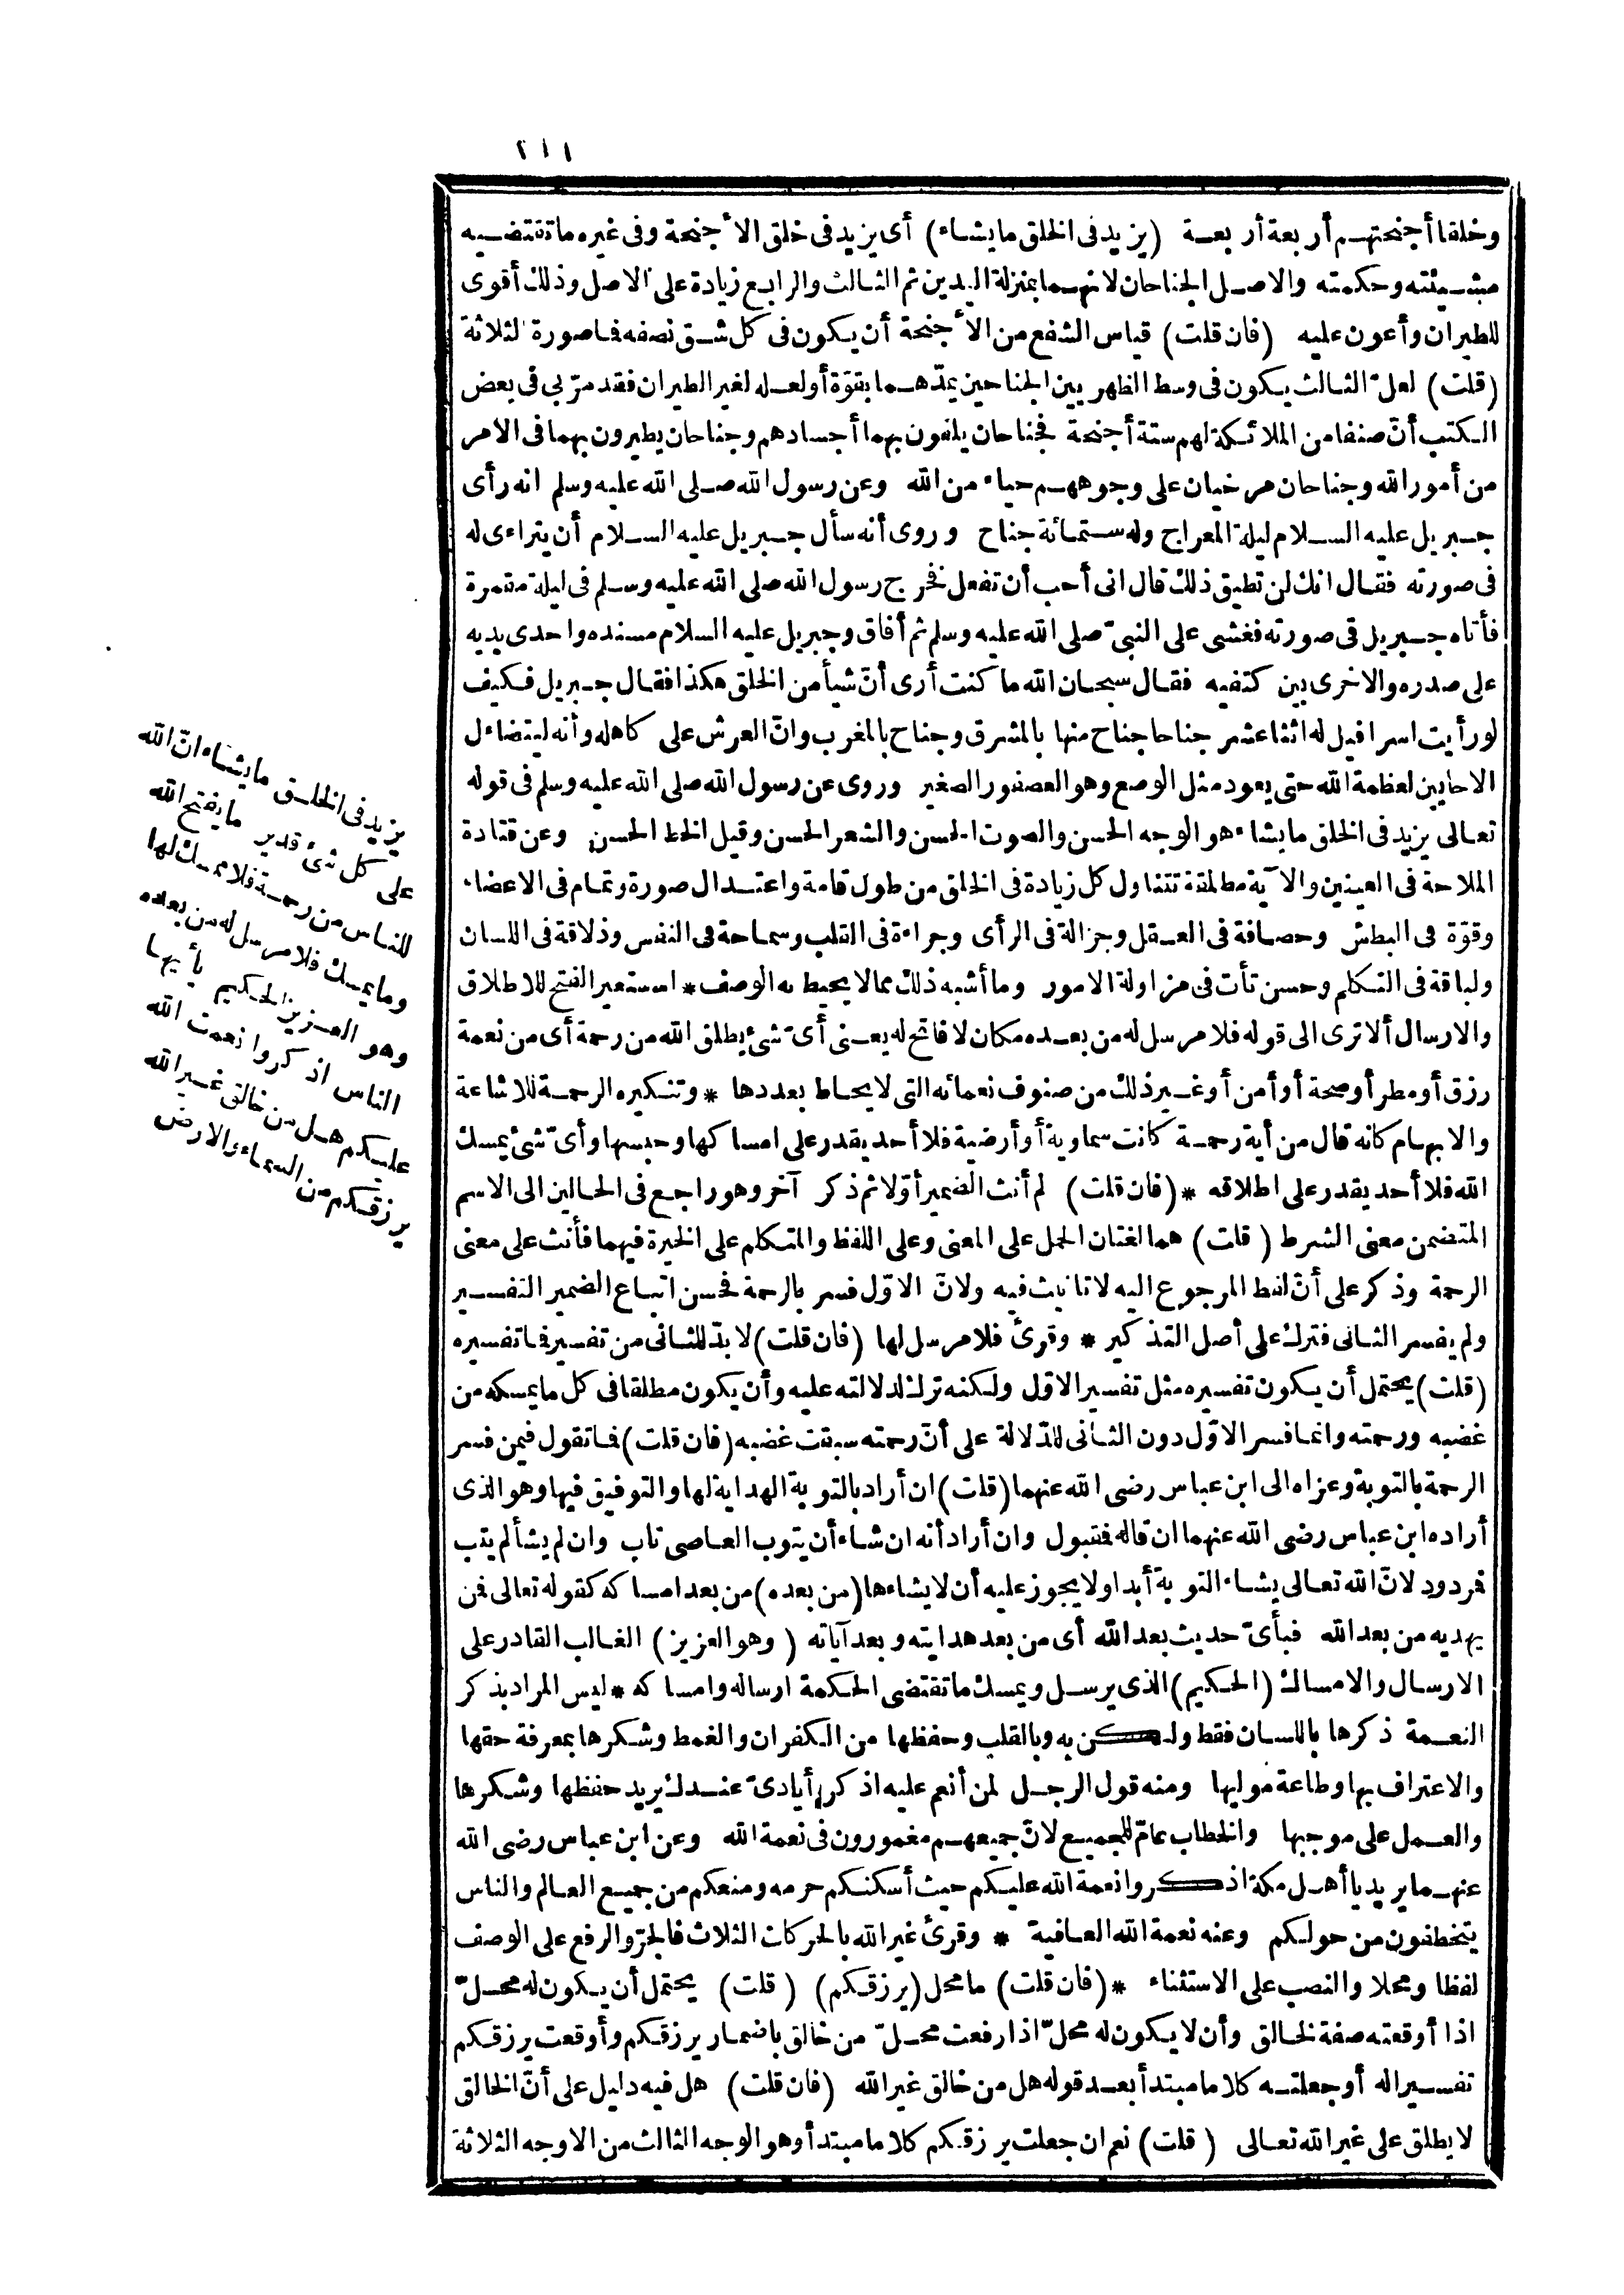 ٢١١
وخلقا أجنحتهم أربعة أربعة (يزيد فى الخلق ما يشاء) أى يزيد فى خلق الأجنحة وفى غيره ما تقتضيه
مشيئته وحكمته والاصل الجناحان لانهما بمنزلة اليدين ثم الثالث والرابع زيادة على الاصل وذلك أقوى
للطيران وأعون عليه (فان قلت) قياس الشفع من الأجنحة أن يكون فى كل شق نصفه فما صورة الثلاثة
(قلت) لعل الثالث يكون فى وسط الظهر بين الجناحين يمدّهما بقوّة أو لعله لغير الطيران فقد مرّ بى فى بعض
الكتب أنّ صنفا من الملائكة لهم ستة أجنحة فجناحان يلفون بهما أجسادهم وجناحان يطيرون بهما فى الامر
من أمور الله وجناحان مرخيان على وجوههم حياء من الله وعن رسول الله صلى الله عليه وسلم انه رأى
جبريل عليه السلام ليلة المعراج وله ستمائة جناح وروى أنه سأل جبريل عليه السلام أن يتراءى له
فى صورته فقال انك لن تطيق ذلك قال انى أحب أن تفعل فخرج رسول الله صلى الله عليه وسلم فى ليلة مقمرة
فأتاه جبريل فى صورته فغشى على النبىّ صلى الله عليه وسلم ثم أفاق وجبريل عليه السلام مسنده واحدى يديه
على صدره والاخرى بين كتفيه فقال سبحان الله ما كنت أرى أنّ شيأ من الخلق هكذا فقال جبريل فكيف
لو رأيت اسرافيل له اثنا عشر جناحا جناح منها بالمشرق وجناح بالمغرب وانّ العرش على كاهله وأنه ليتضاءل
الاحايين لعظمة الله حتى يعود مثل الوصع وهو العصفور الصغير وروى عن رسول الله صلى الله عليه وسلم فى قوله
تعالى يزيد فى الخلق ما يشاء هو الوجه الحسن والصوت الحسن والشعر الحسن وقيل الخط الحسن وعن قتادة
الملاحة فى العينين والآية مطلقة تتناول كل زيادة فى الخلق من طول قامة واعتدال صورة وتمام فى الاعضاء
وقوّة فى البطش وحصافة فى العقل وجزالة فى الرأى وجراءة فى القلب وسماحة فى النفس وذلاقة فى اللسان
ولباقة فى التكلم وحسن تأت فى مزاولة الامور وما أشبه ذلك مما لا يحيط به الوصف * استعير الفتح للاطلاق
والارسال ألا ترى الى قوله فلا مرسل له من بعده مكان لا فاتح له يعنى أىّ شئ يطلق الله من رحمة أى من نعمة
رزق أو مطر أو صحة أو أمن أو غير ذلك من صنوف نعمائه التى لا يحاط بعددها * وتنكيره الرحمة للاشاعة
والابهام كانه قال من أية رحمة كانت سماوية أو أرضية فلا أحد يقدر على امساكها وحبسها وأىّ شئ يمسك
الله فلا أحد يقدر على اطلاقه * (فان قلت) لم أنث الضمير أوّلا ثم ذكر آخر وهو راجع فى الحالين الى الاسم
المتضمن معنى الشرط (قلت) هما لغتان الحمل على المعنى وعلى اللفظ والمتكلم على الخيرة فيهما فأنث على معنى
الرحمة وذكر على أنّ لفظ المرجوع اليه لا تانيث فيه ولانّ الاوّل فسر بالرحمة فحسن اتباع الضمير التفسير
ولم يفسر الثانى فترك على أصل التذكير * وقرئ فلا مرسل لها (فان قلت) لا بدّ للثانى من تفسير فما تفسيره
(قلت) يحتمل أن يكون تفسيره مثل تفسير الاوّل ولكنه ترك لدلالته عليه وأن يكون مطلقا فى كل ما يمسكه من
غضبه ورحمته وانما فسر الاوّل دون الثانى للدّلالة على أنّ رحمته سبقت غضبه (فان قلت) فما تقول فيمن فسر
الرحمة بالتوبة وعزاه الى ابن عباس رضى الله عنهما (قلت) ان أراد بالتوبة الهداية لها والتوفيق فيها وهو الذى
أراده ابن عباس رضى الله عنهما ان قاله فمقبول وان أراد أنه ان شاء أن يتوب العاصى تاب وان لم يشأ لم يتب
فمردود لانّ الله تعالى يشاء التوبة أبدا ولا يجوز عليه أن لا يشاءها (من بعده) من بعد امساكه كقوله تعالى فمن
يهديه من بعد الله فبأىّ حديث بعد الله أى من بعد هدايته وبعد آياته (وهو العزيز) الغالب القادر على
الارسال والامساك (الحكيم) الذى يرسل ويمسك ما تقتضى الحكمة ارساله وامساكه * ليس المراد بذكر
النعمة ذكرها باللسان فقط ولكن به وبالقلب وحفظها من الكفران والغمط وشكرها بمعرفة حقها
والاعتراف بها وطاعة موليها ومنه قول الرجل لمن أنعم عليه اذكر أيادىّ عندك يريد حفظها وشكرها
والعمل على موجبها والخطاب عامّ للجميع لانّ جميعهم مغمورون فى نعمة الله وعن ابن عباس رضى الله
عنهما يريد يا أهل مكة اذكروا نعمة الله عليكم حيث أسكنكم حرمه ومنعكم من جميع العالم والناس
يتخطفون من حولكم وعنه نعمة الله العافية * وقرئ غير الله بالحركات الثلاث فالجرّ والرفع على الوصف
لفظا ومحلا والنصب على الاستثناء * (فان قلت) ما محل (يرزقكم) (قلت) يحتمل أن يكون له محلّ
اذا أوقعته صفة لخالق وأن لا يكون له محلّ اذا رفعت محلّ من خالق باضمار يرزقكم وأوقعت يرزقكم
تفسيرا له أو جعلته كلاما مبتدأ بعد قوله هل من خالق غير الله (فان قلت) هل فيه دليل على أنّ الخالق
لا يطلق على غير الله تعالى (قلت) نعم ان جعلت يرزقكم كلاما مبتدأ وهو الوجه الثالث من الاوجه الثلاثة
يزيد فى الخلق ما يشاء انّ الله
على كل شئ قدير ما يفتح الله
للناس من رحمة فلا ممسك لها
وما يمسك فلا مرسل له من بعده
وهو العزيز الحكيم يأيها
الناس اذكروا نعمت الله
عليكم هل من خالق غير الله
يرزقكم من السماء والارض